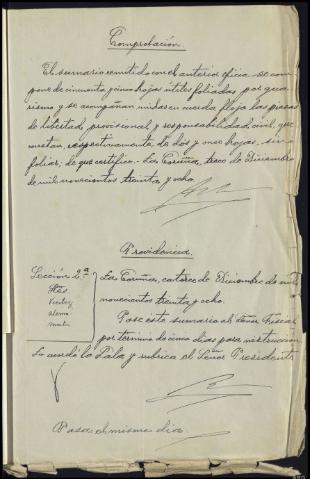 Comprobación.
El sumario remitido con el anterior oficio se com-
pone de cincuenta y cinco hojas útiles foliadas por gua-
rismo y se acompañan unidas en cuerda floja las piezas
de libertad provisional y responsabilidad civil, que
constan, respectivamente, de dos y once hojas, sin
foliar; de que certifico.- La Coruña, trece de Diciembre
de mil novecientos treinta y ocho.
Providencia.
Sección 2.ª
La Coruña, catorce de Diciembre de mil
novecientos treinta y ocho.
Pase este sumario al Señor Fiscal
por término de cinco días para instrucción
Lo acordó la Sala y rubrica el Señor Presidente
Pasa el mismo día.